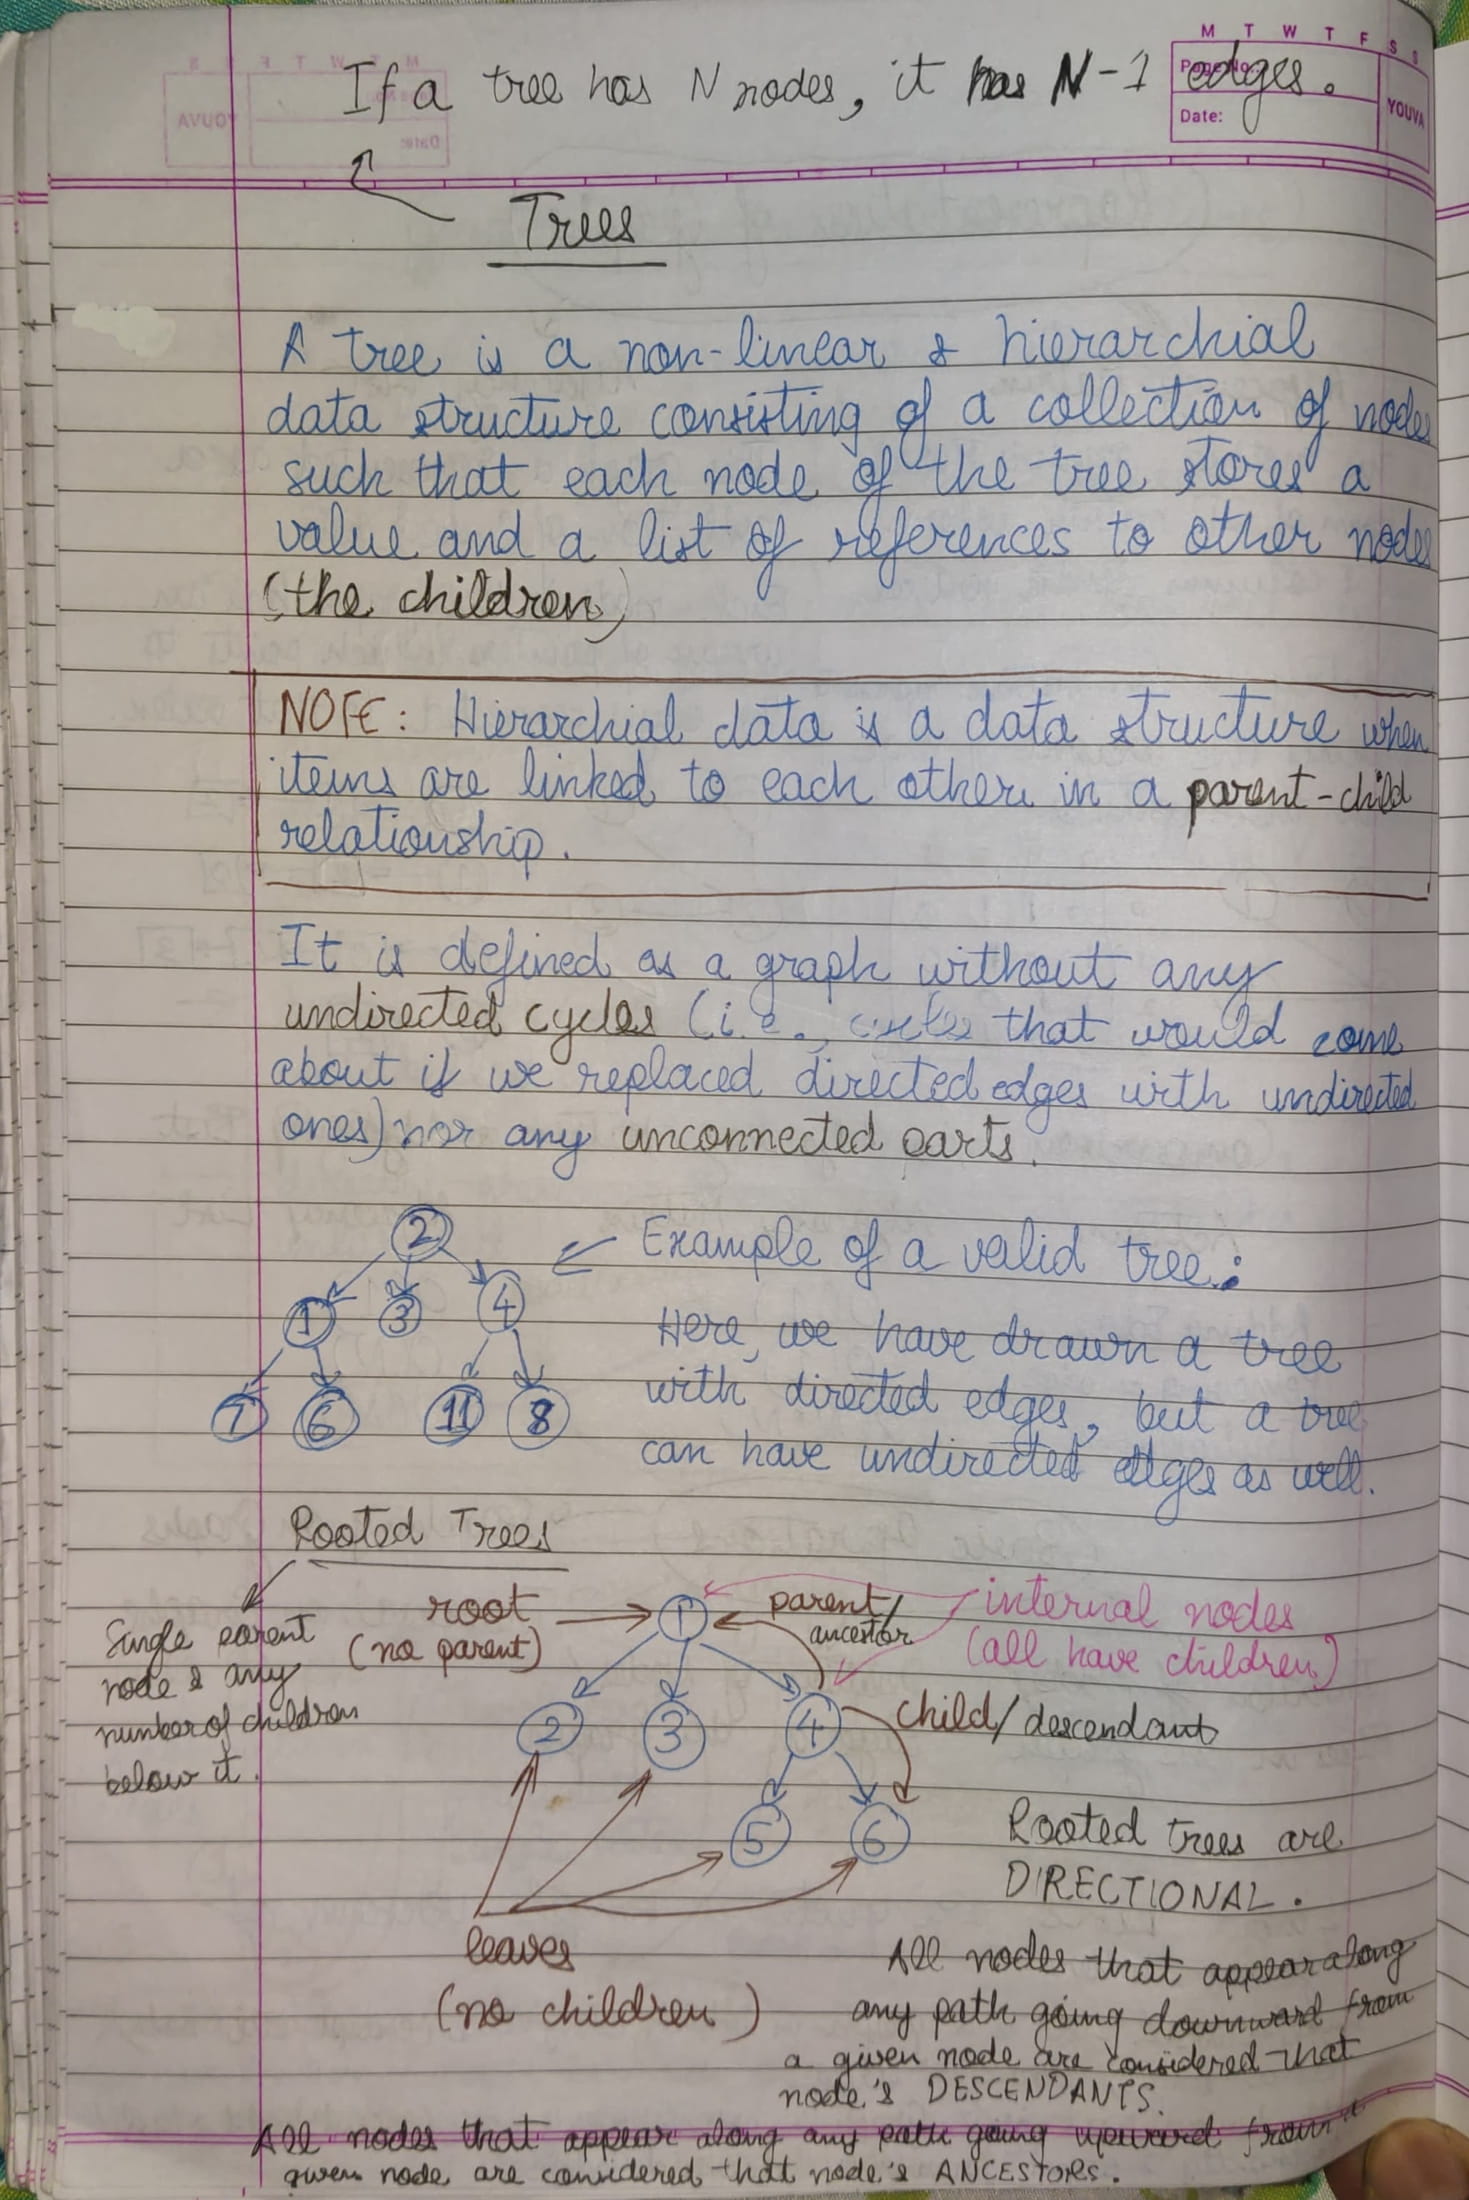 M T W T F S S
Page No.:
Date:
YOUVA
If a tree has N nodes, it has N-1 edges.
Trees
A tree is a non-linear & hierarchial
data structure consisting of a collection of nodes
such that each node of the tree stores a
value and a list of references to other nodes
(the children)
NOTE: Hierarchial data is a data structure when
items are linked to each other in a parent-child
relationship.
It is defined as a graph without any
undirected cycles (i.e., cycles that would come
about if we replaced directed edges with undirected
ones) nor any unconnected parts.
2
Example of a valid tree:
1 3 4
Here, we have drawn a tree
with directed edges, but a tree
7 6 11 8
can have undirected edges as well.
Rooted Trees
Single parent
node & any
number of children
below it.
root
(no parent)
1
parent/
ancestor
internal nodes
(all have children)
2 3 4
child/descendant
5 6
Rooted trees are
DIRECTIONAL.
leaves
(no children)
All nodes that appear along
any path going downward from
a given node are considered that
node's DESCENDANTS.
All nodes that appear along any path going upward from a
given node are considered that node's ANCESTORS.